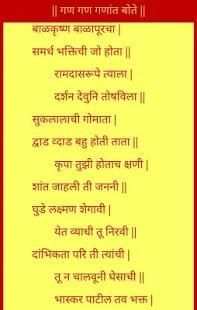 || गण गण गणांत बोते ||
बाळकृष्ण बाळापूरचा |
समर्थ भक्तिची जो होता ||
रामदासरूपे त्याला |
दर्शन देवुनि तोषविला ||
सुकलालाची गोमाता |
द्वाड व्दाड बहु होती ताता ||
कृपा तुझी होताच क्षणी |
शांत जाहली ती जननी ||
घुडे लक्ष्मण शेगावी |
येत व्याधी तू निरवी ||
दांभिकता परि ती त्यांची |
तू न चालवूनी घेसाची ||
भास्कर पाटील तव भक्त |